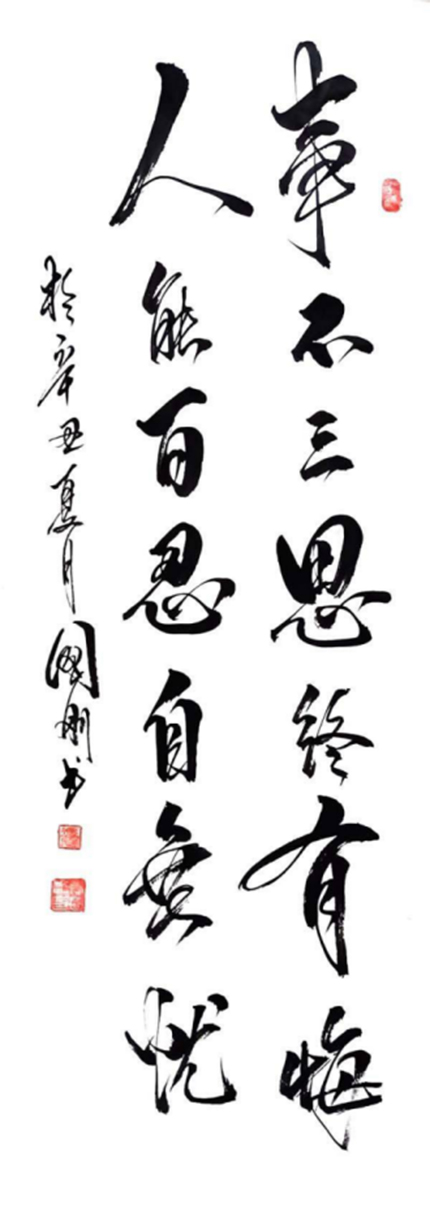 事不三思终有悔
人能百忍自无忧
於辛丑夏月国刚书